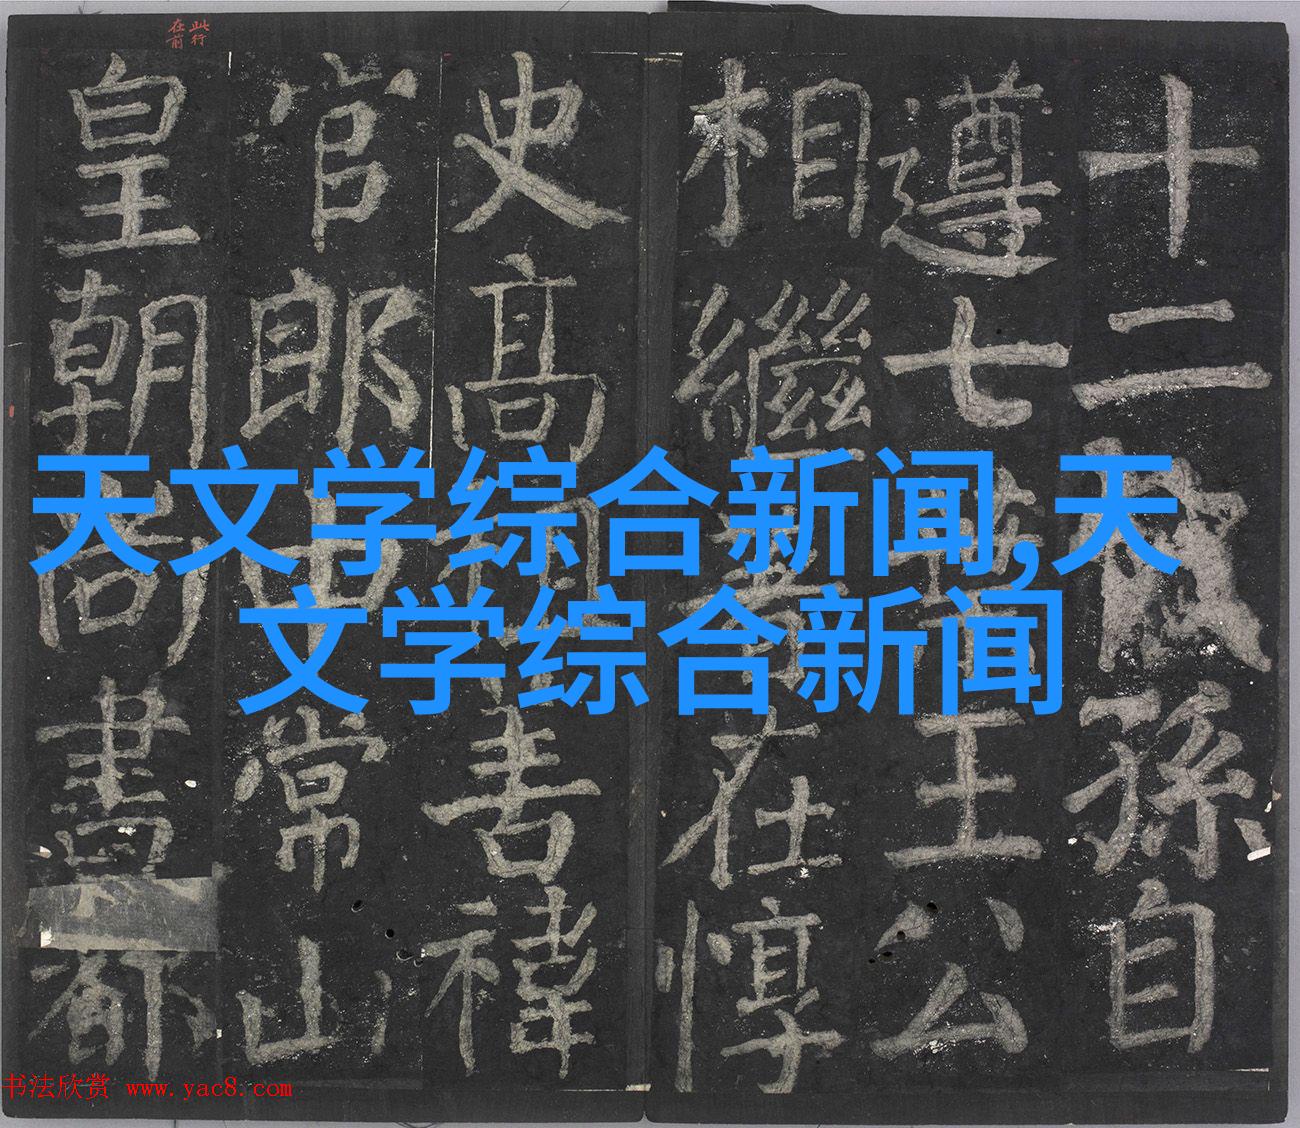 此行
在前
十二孫自
遵七王公
相繼在惇
史高祖善褘
官郎中常山
皇朝尚書都
天文学综合新闻,天
文学综合新闻
书法欣赏 www.yac8.com